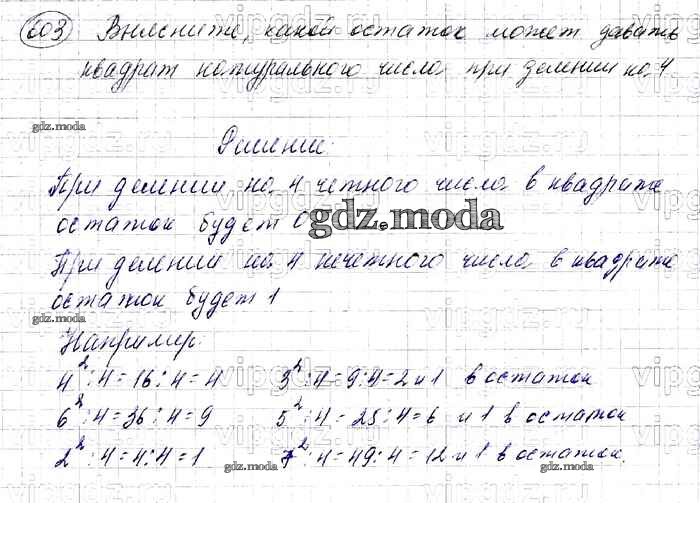 603 Выясните, какой остаток может давать
квадрат натурального числа при делении на 4
gdz.moda
Решение:
При делении на 4 четного числа в квадрате
остаток будет 0
gdz.moda
При делении на 4 нечетного числа в квадрате
остаток будет 1
gdz.moda
Например:
4² : 4 = 16 : 4 = 4 3² : 4 = 9 : 4 = 2 и 1 в остаток
6² : 4 = 36 : 4 = 9 5² : 4 = 25 : 4 = 6 и 1 в остаток
2² : 4 = 4 : 4 = 1 7² : 4 = 49 : 4 = 12 и 1 в остаток.
gdz.moda gdz.moda